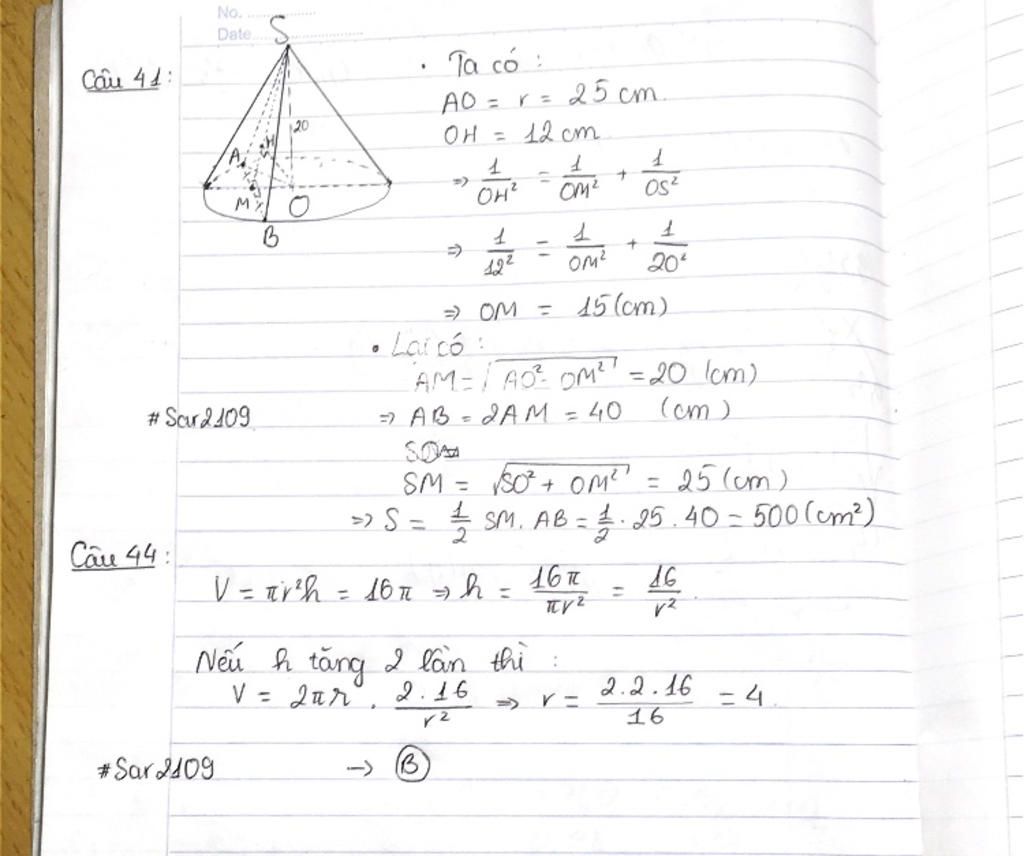 No. ...............
Date ...............
Câu 41 :
S
20
A
H
M
O
B
• Ta có :
AO = r = 25 cm.
OH = 12 cm
⇒ 1/OH² = 1/OM² + 1/OS²
⇒ 1/12² = 1/OM² + 1/20²
⇒ OM = 15 (cm)
• Lại có :
AM = √(AO² - OM²) = 20 (cm)
#Sar2109
⇒ AB = 2AM = 40 (cm)
SM = √(SO² + OM²) = 25 (cm)
⇒ S = 1/2 SM. AB = 1/2 . 25 . 40 = 500 (cm²)
Câu 44 :
V = πr²h = 16π ⇒ h = 16π/πr² = 16/r²
Nếu h tăng 2 lần thì :
V = 2πr . 2.16/r² ⇒ r = 2.2.16/16 = 4
#Sar2109 → B